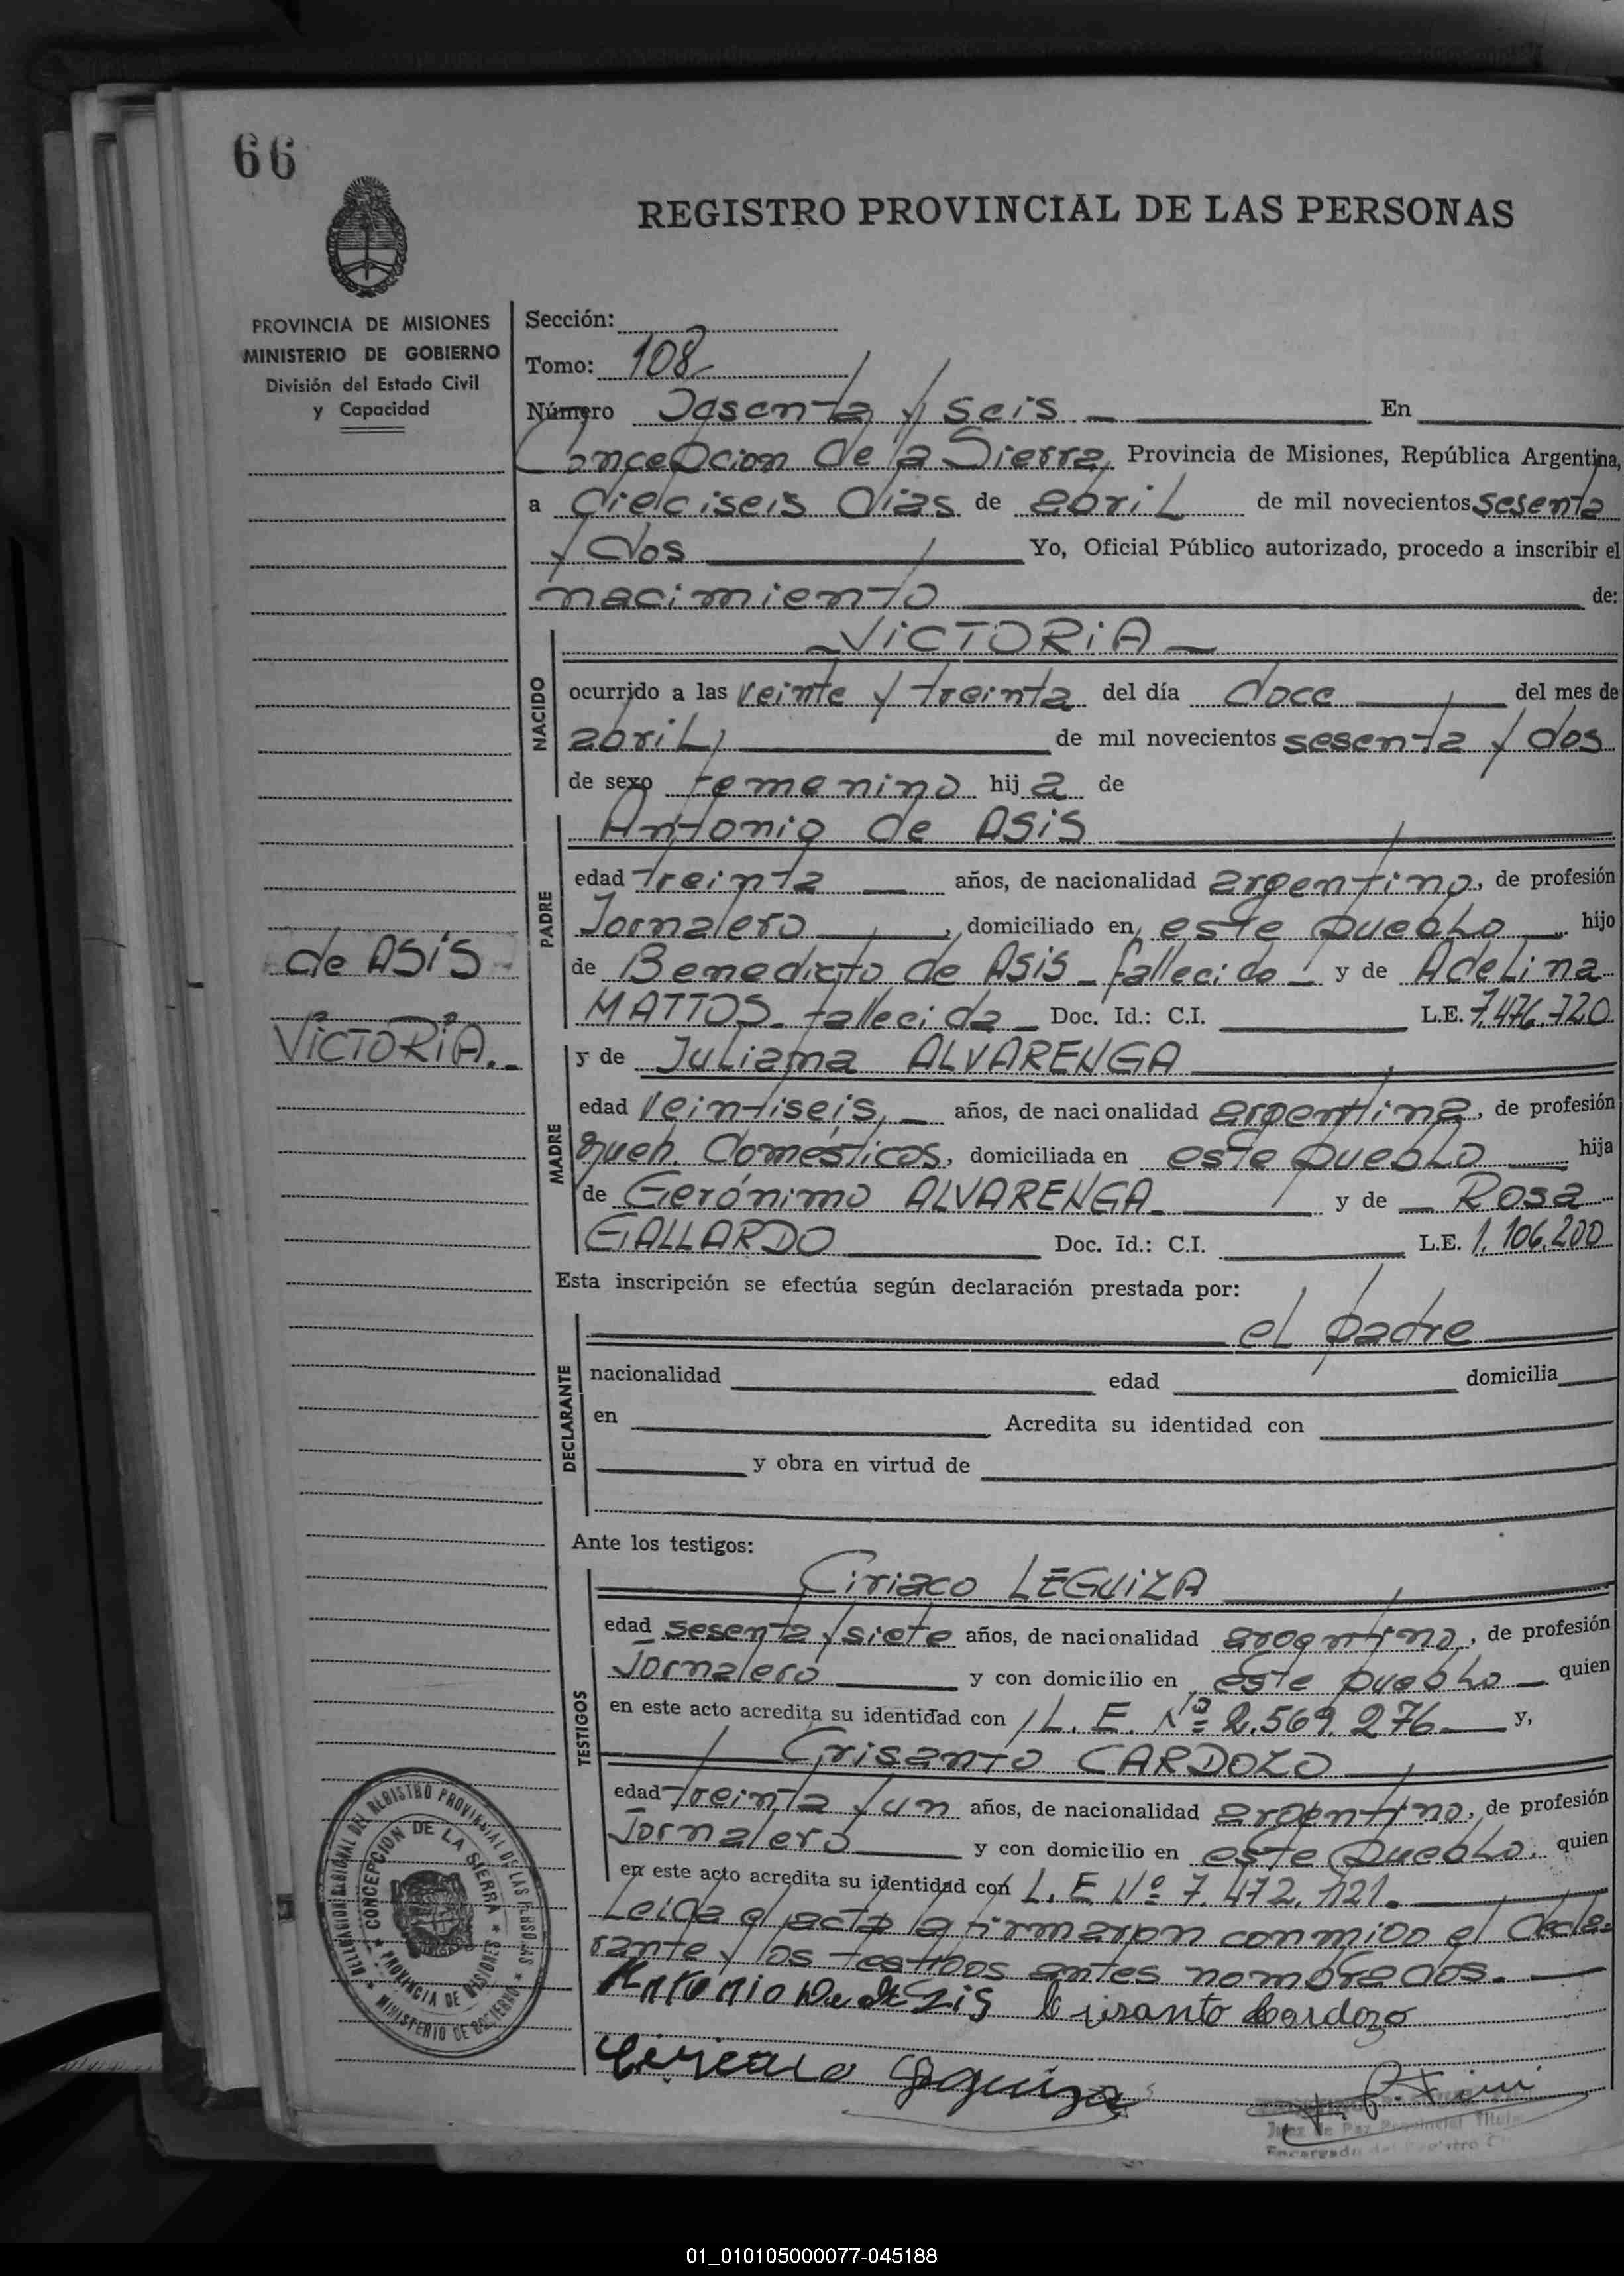 66
REGISTRO PROVINCIAL DE LAS PERSONAS
PROVINCIA DE MISIONES
MINISTERIO DE GOBIERNO
División del Estado Civil
y Capacidad
Sección:
Tomo: 108
Número Sesenta y seis En
Concepcion de la Sierra, Provincia de Misiones, República Argentina,
a dieciseis dias de abril de mil novecientos sesenta
y dos Yo, Oficial Público autorizado, procedo a inscribir el
nacimiento de:
VICTORIA
NACIDO
ocurrido a las veinte y treinta del día doce del mes de
abril, de mil novecientos sesenta y dos
de sexo femenino hija de
PADRE
Antonio de ASIS
edad treinta años, de nacionalidad argentino, de profesión
Jornalero, domiciliado en este pueblo hijo
de Benedicto de ASIS - fallecido - y de Adelina
MATTOS - fallecida - Doc. Id.: C.I. L.E. 7.476.720
de ASIS
VICTORIA.-
MADRE
y de Juliana ALVARENGA
edad veintiseis, años, de nacionalidad argentina, de profesión
queh. Domésticos, domiciliada en este pueblo hija
de Gerónimo ALVARENGA y de Rosa
GALLARDO Doc. Id.: C.I. L.E. 1.106.200
Esta inscripción se efectúa según declaración prestada por:
DECLARANTE
el padre
nacionalidad edad domicilia
en Acredita su identidad con
y obra en virtud de
Ante los testigos:
TESTIGOS
Ciriaco LEGUIZA
edad sesenta y siete años, de nacionalidad argentino, de profesión
Jornalero y con domicilio en este pueblo quien
en este acto acredita su identidad con L. E. Nº 2.569.276 y,
Crisanto CARDOZO
edad treinta y un años, de nacionalidad argentino, de profesión
Jornalero y con domicilio en este pueblo. quien
en este acto acredita su identidad con L. E. Nº 7.472.121.
Leida el acta la firmaron conmigo el decla-
rante y los testigos antes nombrados.
Antonio De Asis Crisanto Cardozo
Ciriaco Leguiza
DELEGACION REGIONAL DEL REGISTRO PROVINCIAL DE LAS PERSONAS
MINISTERIO DE GOBIERNO
CONCEPCION DE LA SIERRA
PROVINCIA DE MISIONES
Juez de Paz Provincial Titular
Encargado del Registro
01_010105000077-045188